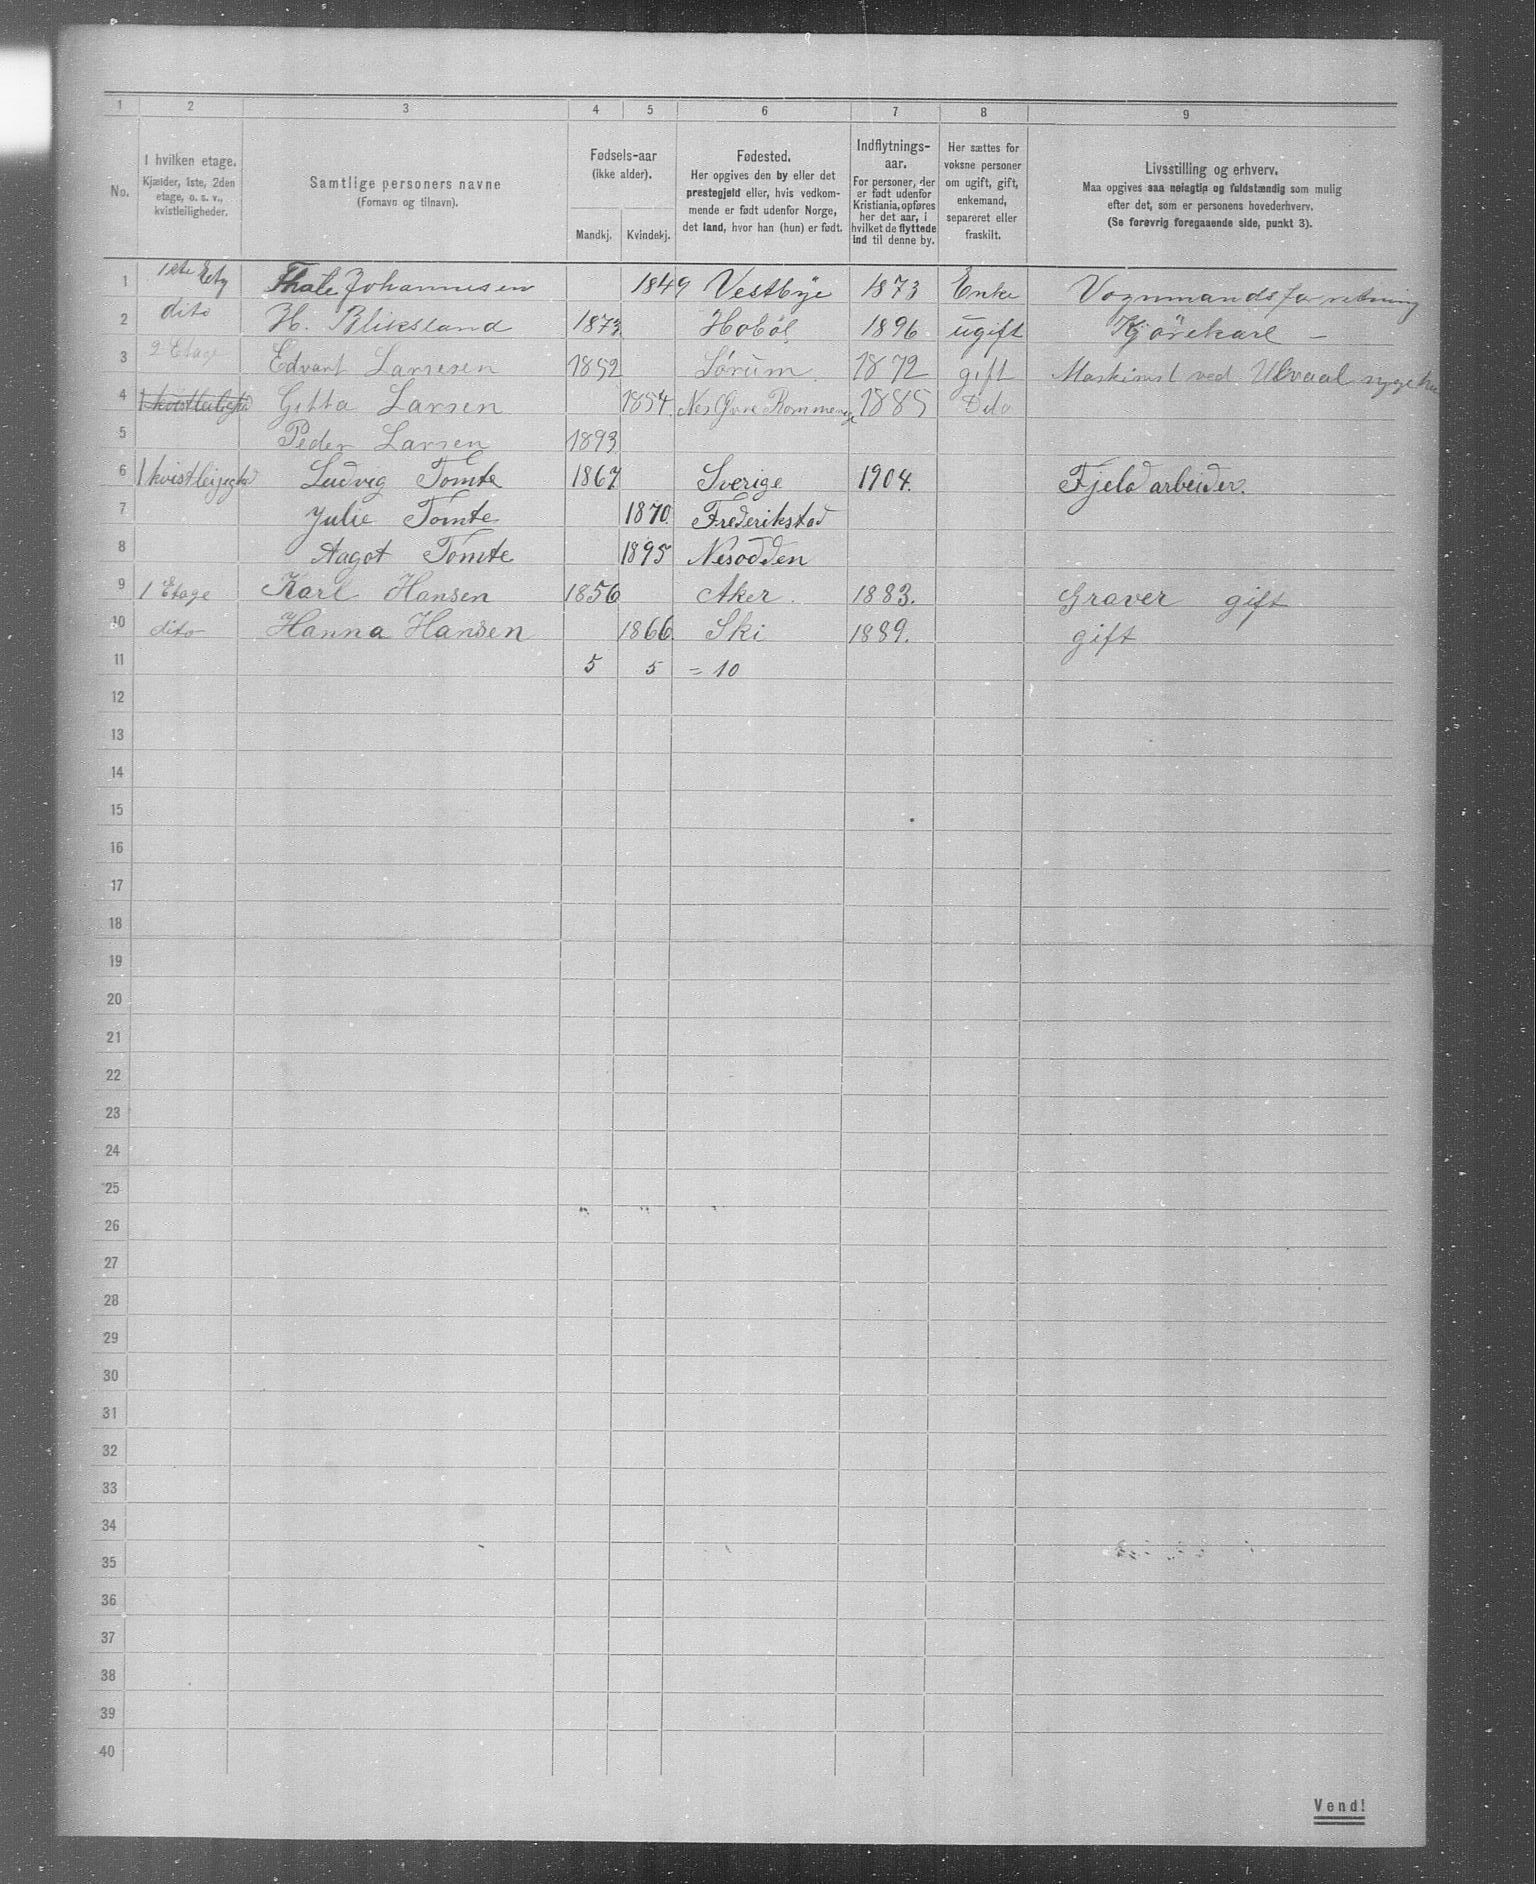 1 2 3 4 5 6 7 8 9
No.
I hvilken etage.
Kjælder, 1ste, 2den
etage, o. s. v.,
kvistleiligheder.
Samtlige personers navne
(Fornavn og tilnavn).
Fødsels-aar
(ikke alder).
Mandkj. Kvindekj.
Fødested.
Her opgives den by eller det
prestegjeld eller, hvis vedkom-
mende er født udenfor Norge,
det land, hvor han (hun) er født.
Indflytnings-
aar.
For personer, der
er født udenfor
Kristiania, opføres
her det aar, i
hvilket de flyttede
ind til denne by.
Her sættes for
voksne personer
om ugift, gift,
enkemand,
separeret eller
fraskilt.
Livsstilling og erhverv.
Maa opgives saa nøiagtig og fuldstændig som mulig
efter det, som er personens hovederhverv.
(Se forøvrig foregaaende side, punkt 3).
1 1ste Etg Thale Johannesen 1849 Vestbye 1873 Enke Vognmandsforretning
2 dito H. Bliksland 1873 Hobøl 1896 ugift Kjørekarl –
3 2 Etage Edvart Larsesen 1852 Sørum 1872 gift Maskinist ved Ulvaal
4 Gitta Larsen 1854 Nes Øvre Rommerige 1885 Dito
5 Peder Larsen 1893
6 1 Ludvig Tomte 1867 Sverige 1904. Fjeldarbeider.
7 Julie Tomte 1870 Frederikstad
8 Aagot Tomte 1895 Nesodden
9 1 Etage Karl Hansen 1856 Aker 1883. Graver gift
10 dito Hanna Hansen 1866 Ski 1889. gift
11 5 5 = 10
12
13
14
15
16
17
18
19
20
21
22
23
24
25
26
27
28
29
30
31
32
33
34
35
36
37
38
39
40
Vend!